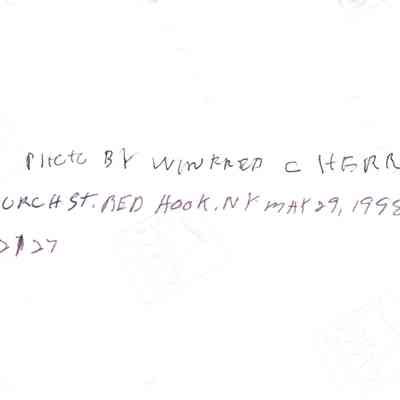 PHOTO BY WINFRED C HERR
URCH ST. RED HOOK. NY MAY 29, 1998
2127